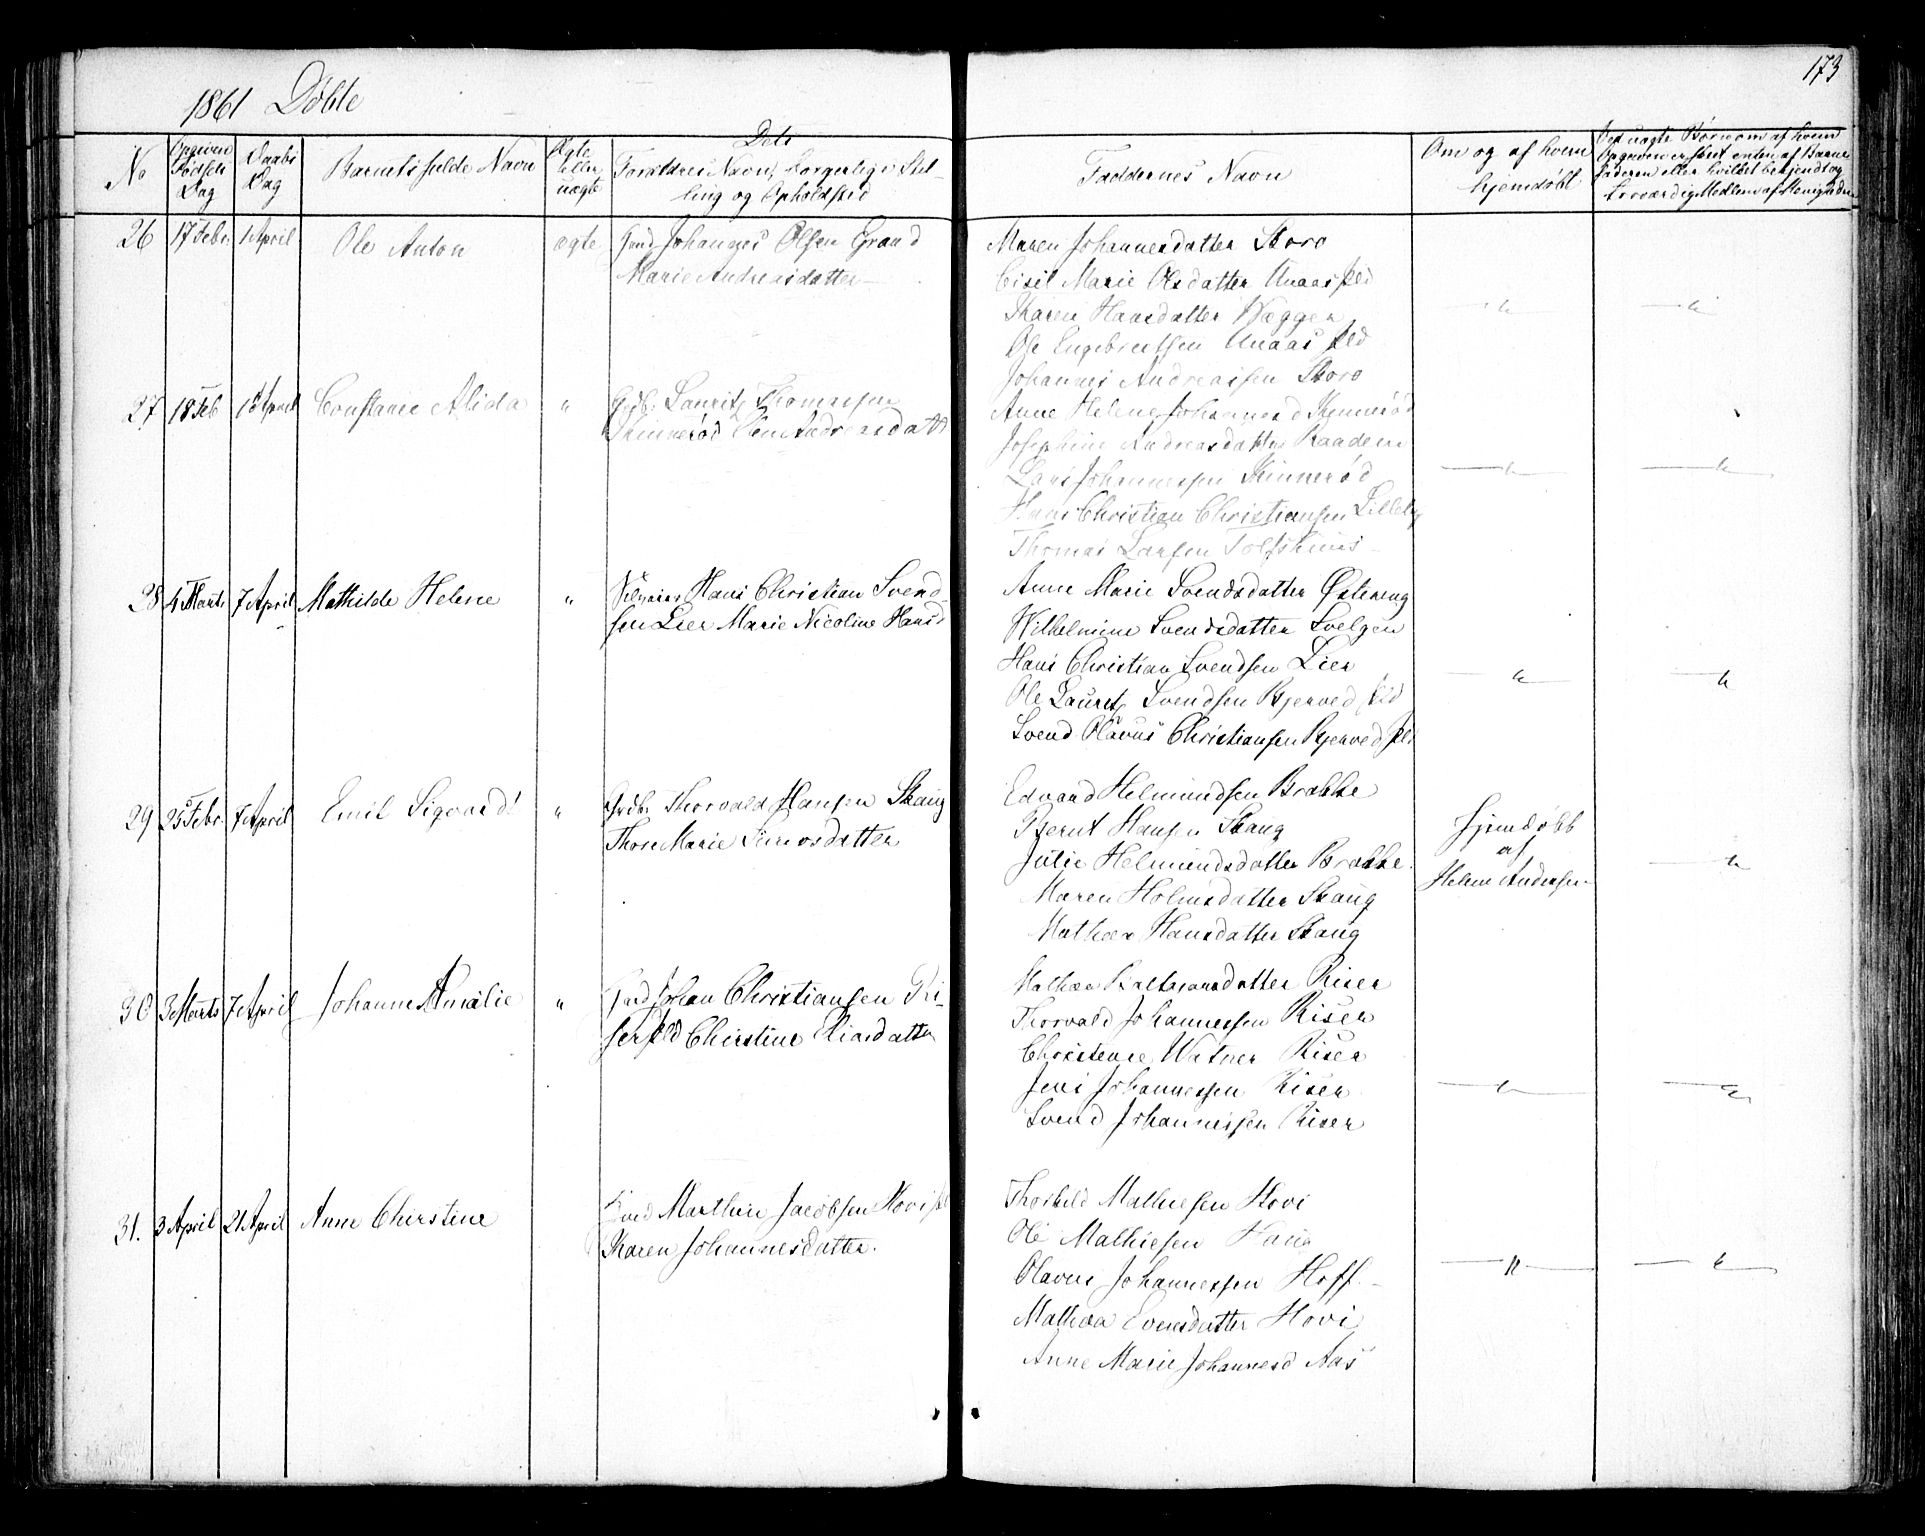 173
1861 Døbte
No
Opgiven Fødsels Dag
Daabs Dag
Barnets fulde Navn
Ægte eller uægte
Dets
Forældres Navn, borgerlige Stilling og Opholdsted
Faddernes Navn
Om og af hvem hjemdøbt
Ved uægte Børn om af hvem Opgiven er skeet enten af Barne
faderen eller hvilket bekjendt og
troværdig Medlem af Menigheden
26 17 Febr 1 April Ole Anton ægte Johannes Olsen Grand
Marie Andreasdatter
Maren Johannesdatter Storo
Cisil Marie Olsdatter
Karen Hansdatter Wæggen
Ole Engebretsen
Johannes Andreassen Storo
27 18 Feb 1 April Constance Alida " Grdbr Lauritz Thomassen
Skinnerød Andreasdattr
Anne Helene Johannesd Skinnerød
Josephine Andreasdatter Raaden
Lars Johannessen Skinnerød
Hans Christian Christiansen Lilleby
Thomas Larsen
28 4 Marts 7 April Mathilde Helene " Hans Christian Svend-
sen Lier Marie Nicoline Hansd
Anne Marie Svendsdatter Østereng
Wilhelmine Svendsdatter Svelgen
Hans Christian Svendsen Lier
Ole Lauritz Svendsen Bjerved
Svend Olavus Christiansen Bjerved
29 25 Febr 7 April Emil Sigvard " Grdbr Thorvald Hansen Skaug
Thore Marie
Edvard Helmundsen Brække
Bernt Hansen Skaug
Julie Helmundsdatter Brække
Maren Holmsdatter Skaug
Mathea Hansdatter Skaug
Hjemdøbt
af
Helene Andersen
30 3 Marts 7 April Johanne Amalie " Johan Christiansen Ri-
ser Christine Eliasdatter
Mathea Baltzersdatter Riser
Thorvald Johannessen Riser
Christence Watner Riser
Jens Johannessen Riser
Svend Johannessen Riser
31. 3 April 21 April Anne Christine Marthin Jacobsen Hovi
Karen Johannesdatter.
Thorkild Mathiesen Hovi
Ole Mathiesen Haug
Olavus Johannessen Hoff
Mathea Evensdatter Hovi
Anne Marie Johannesd Aas